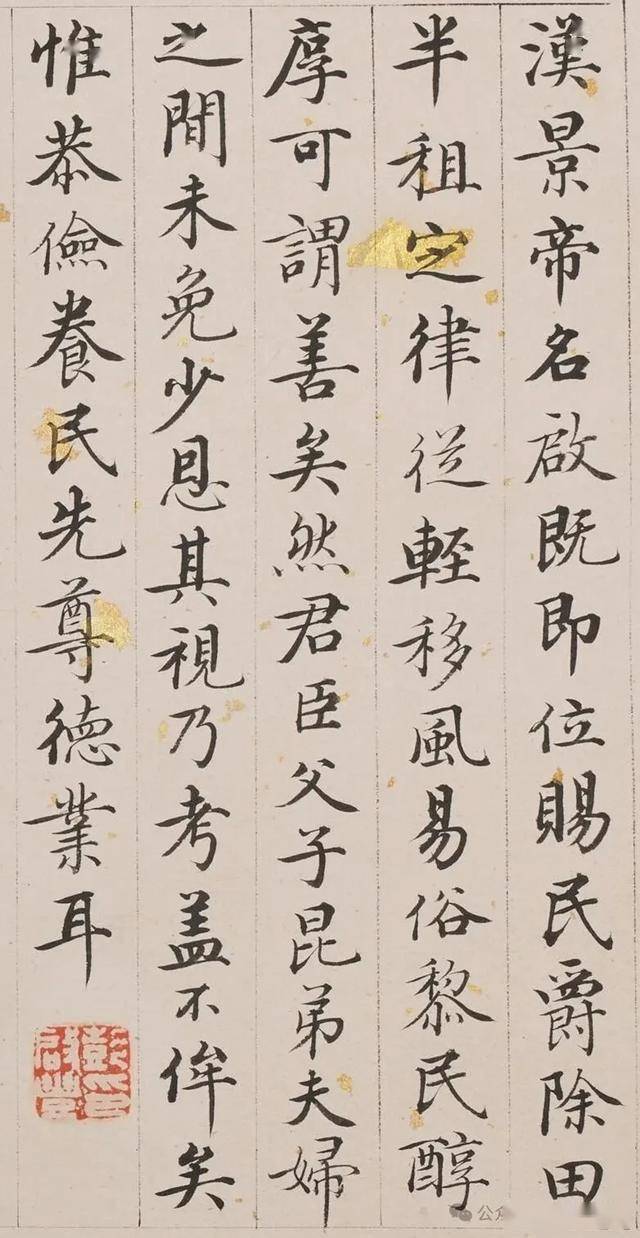 漢景帝名啟既即位賜民爵除田
半租定律從輕移風易俗黎民醇
厚可謂善矣然君臣父子昆弟夫婦
之間未免少恩其視乃考盖不侔矣
惟恭儉養民先尊德業耳
彭啟豐印
公众